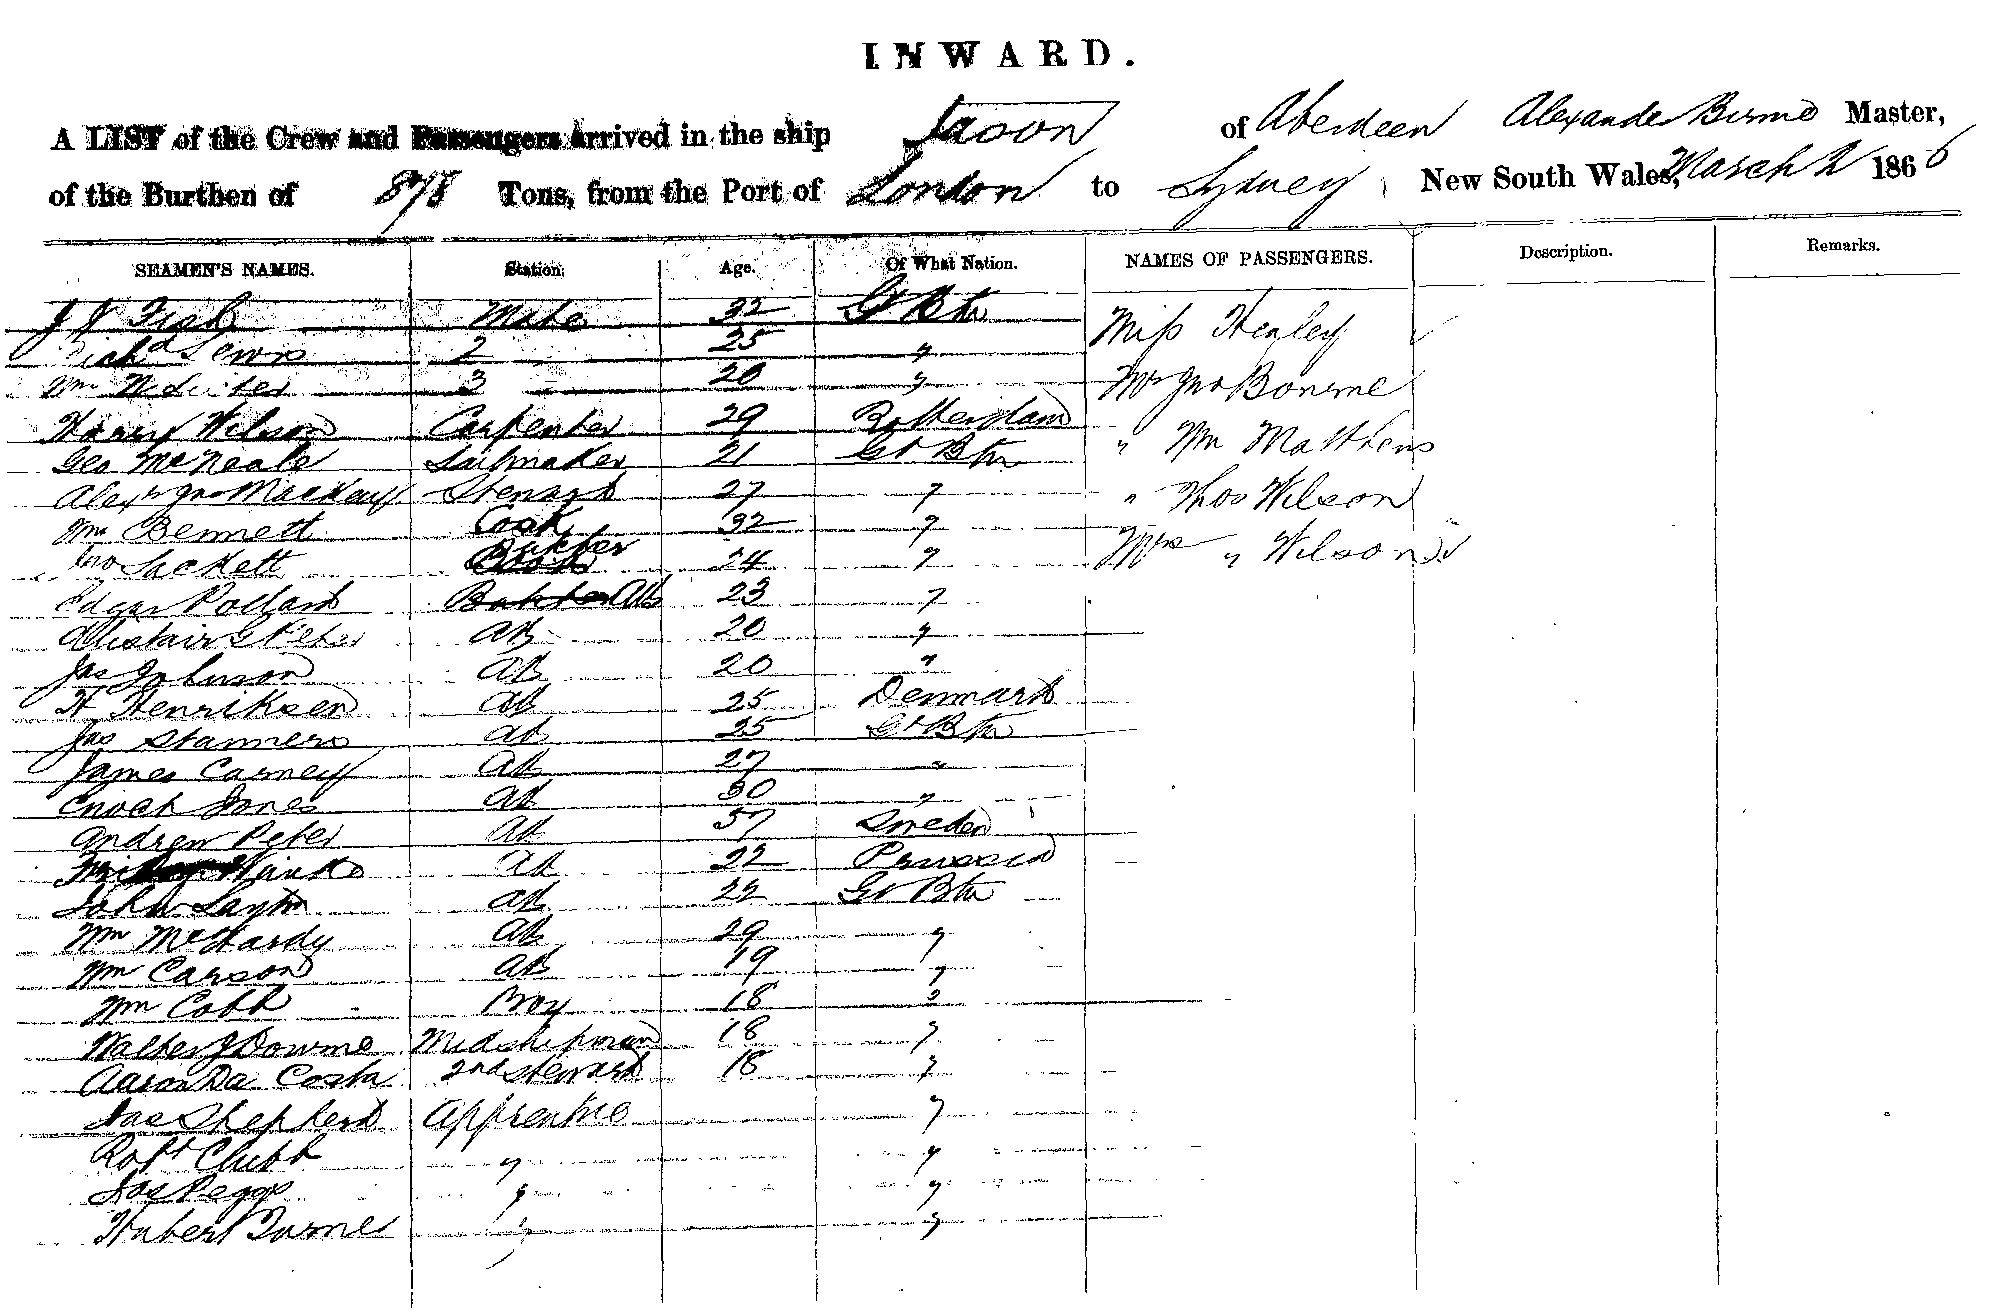 INWARD.
A LIST of the Crew and Passengers arrived in the ship Jason of Aberdeen Alexander Birnie Master,
of the Burthen of 878 Tons, from the Port of London to Sydney, New South Wales, March 2 1866
SEAMEN'S NAMES. Station. Age. Of What Nation. NAMES OF PASSENGERS. Description. Remarks.
J J Fish Mate 32 Gt Btn Miss Healey
Richd Lewis 2 25 "
Wm 3 20 " Mr Jno Bourne
Harry Wilson Carpenter 29 Rotterdam
Geo McNeale Sailmaker 21 Gt Btn " Wm Matthews
Alexr Jno Mackay Steward 27 " " Thos Wilson
Wm Bennett Cook 32 " Mrs " Wilson
Jno Sackett Butcher 24 "
Edgar Pollard AB 23 "
Alistair G Peter AB 20 "
Jas Johnson AB 20 "
H Henriksen AB 25 Denmark
Jas Stanners AB 25 Gt Btn
James Carney AB 27 "
Enoch Jones AB 30 "
Andrew Peter AB 37 Sweden
AB 22 Prussia
John Layton AB 22 Gt Btn
Wm McHardy AB 29 "
Wm Carson AB 19 "
Wm Cobb Boy 18 "
Walter J Downe Midshipman 18 "
Aaron Da Costa 2nd Steward 18 "
Jas Shepherd Apprentice "
Robt Clubb " "
Jas Peggs " "
Hubert Turner " "